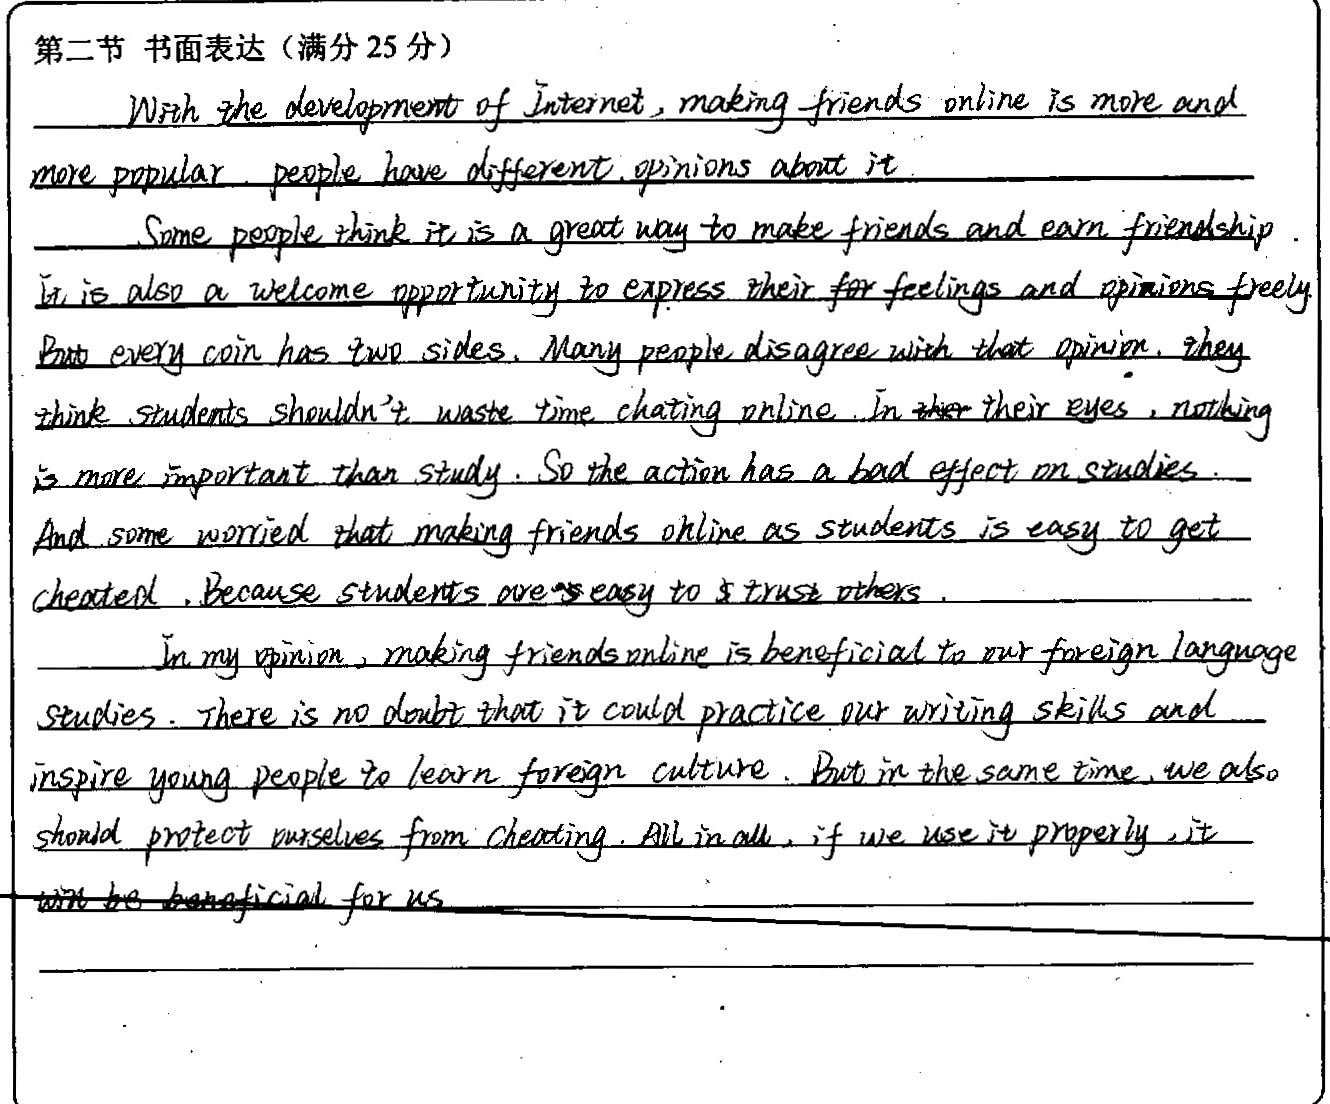 第二节 书面表达（满分 25 分）
With the development of Internet, making friends online is more and
more popular. people have different opinions about it.
Some people think it is a great way to make friends and earn friendship.
It is also a welcome opportunity to express their feelings and opinions freely.
But every coin has two sides. Many people disagree with that opinion. they
think students shouldn't waste time chating online. In their eyes, nothing
is more important than study. So the action has a bad effect on studies.
And some worried that making friends online as students is easy to get
cheated. Because students are easy to trust others.
In my opinion, making friends online is beneficial to our foreign language
studies. There is no doubt that it could practice our writing skills and
inspire young people to learn foreign culture. But in the same time, we also
should protect ourselves from cheating. All in all, if we use it properly, it
will be beneficial for us